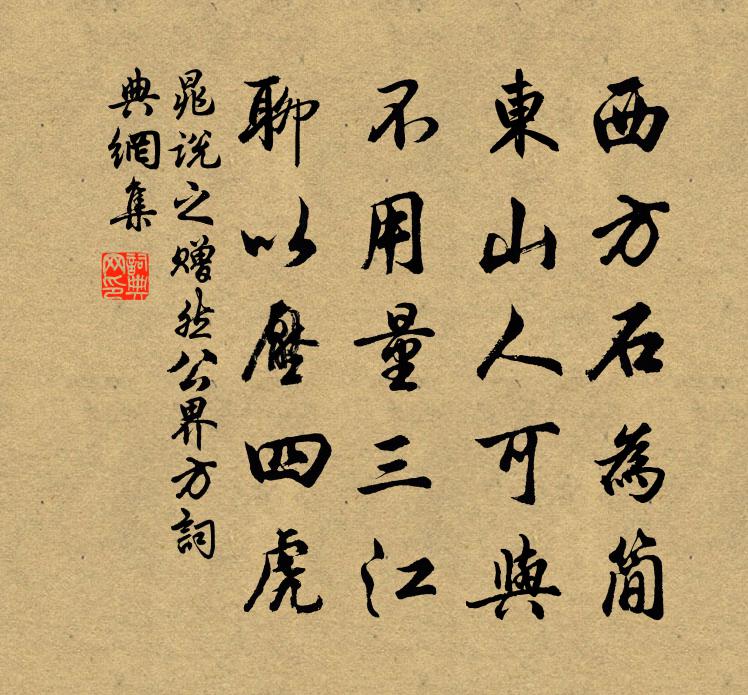 西方石為簡
東山人可與
不用量三江
聊以壓四虎
晁說之贈然公界方詞
典網集
詞典网印